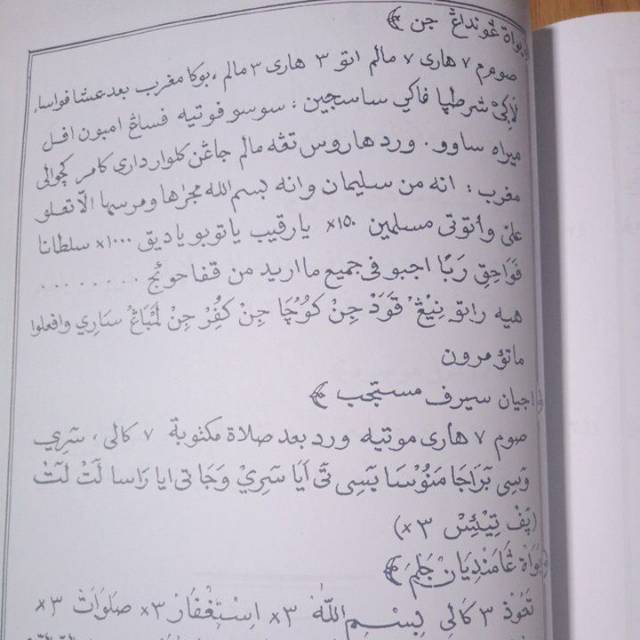 بواة غونداڠ جن
صومرم ٧ هاري ٧ مالم اتو ٣ هاري ٣ مالم ، بوكا مغرب بعد عشا فواسا،
لاكي شرطيا فاكي ساسجين : سوسو فوتيه فساڠ امبون افل
ميراه ساوو . ورد هاروس تڠه مالم جاڠن كلوار داري كامر كچوالي
مغرب : انه من سليمان وانه بسم الله مجراها ومرسها الا تعلو
علي وأتوني مسلمين ١٥٠× يا رقيب يا توبو يا ديق ١٠٠٠× سلطانا
فواحق ربا اجبو في جميع ما اريد من قفا حوئج ........
هيه راتو نيڠ قود جن كوچا جن كفر جن لمباڠ ساري وافعلوا
ماتؤمرون
اجيان سيرف مستجب
صوم ٧ هاري موتيه ورد بعد صلاة مكتوبة ٧ كالي ، سري
وسي براجا منوسا بسي تى أيا سري وجاتى ايا راسا لت لت
(بف تيتس ٣×)
بواة غامنديان جلم
تعوذ ٣ كالي بسم الله ٣× استغفار ٣× صلوات ٣×